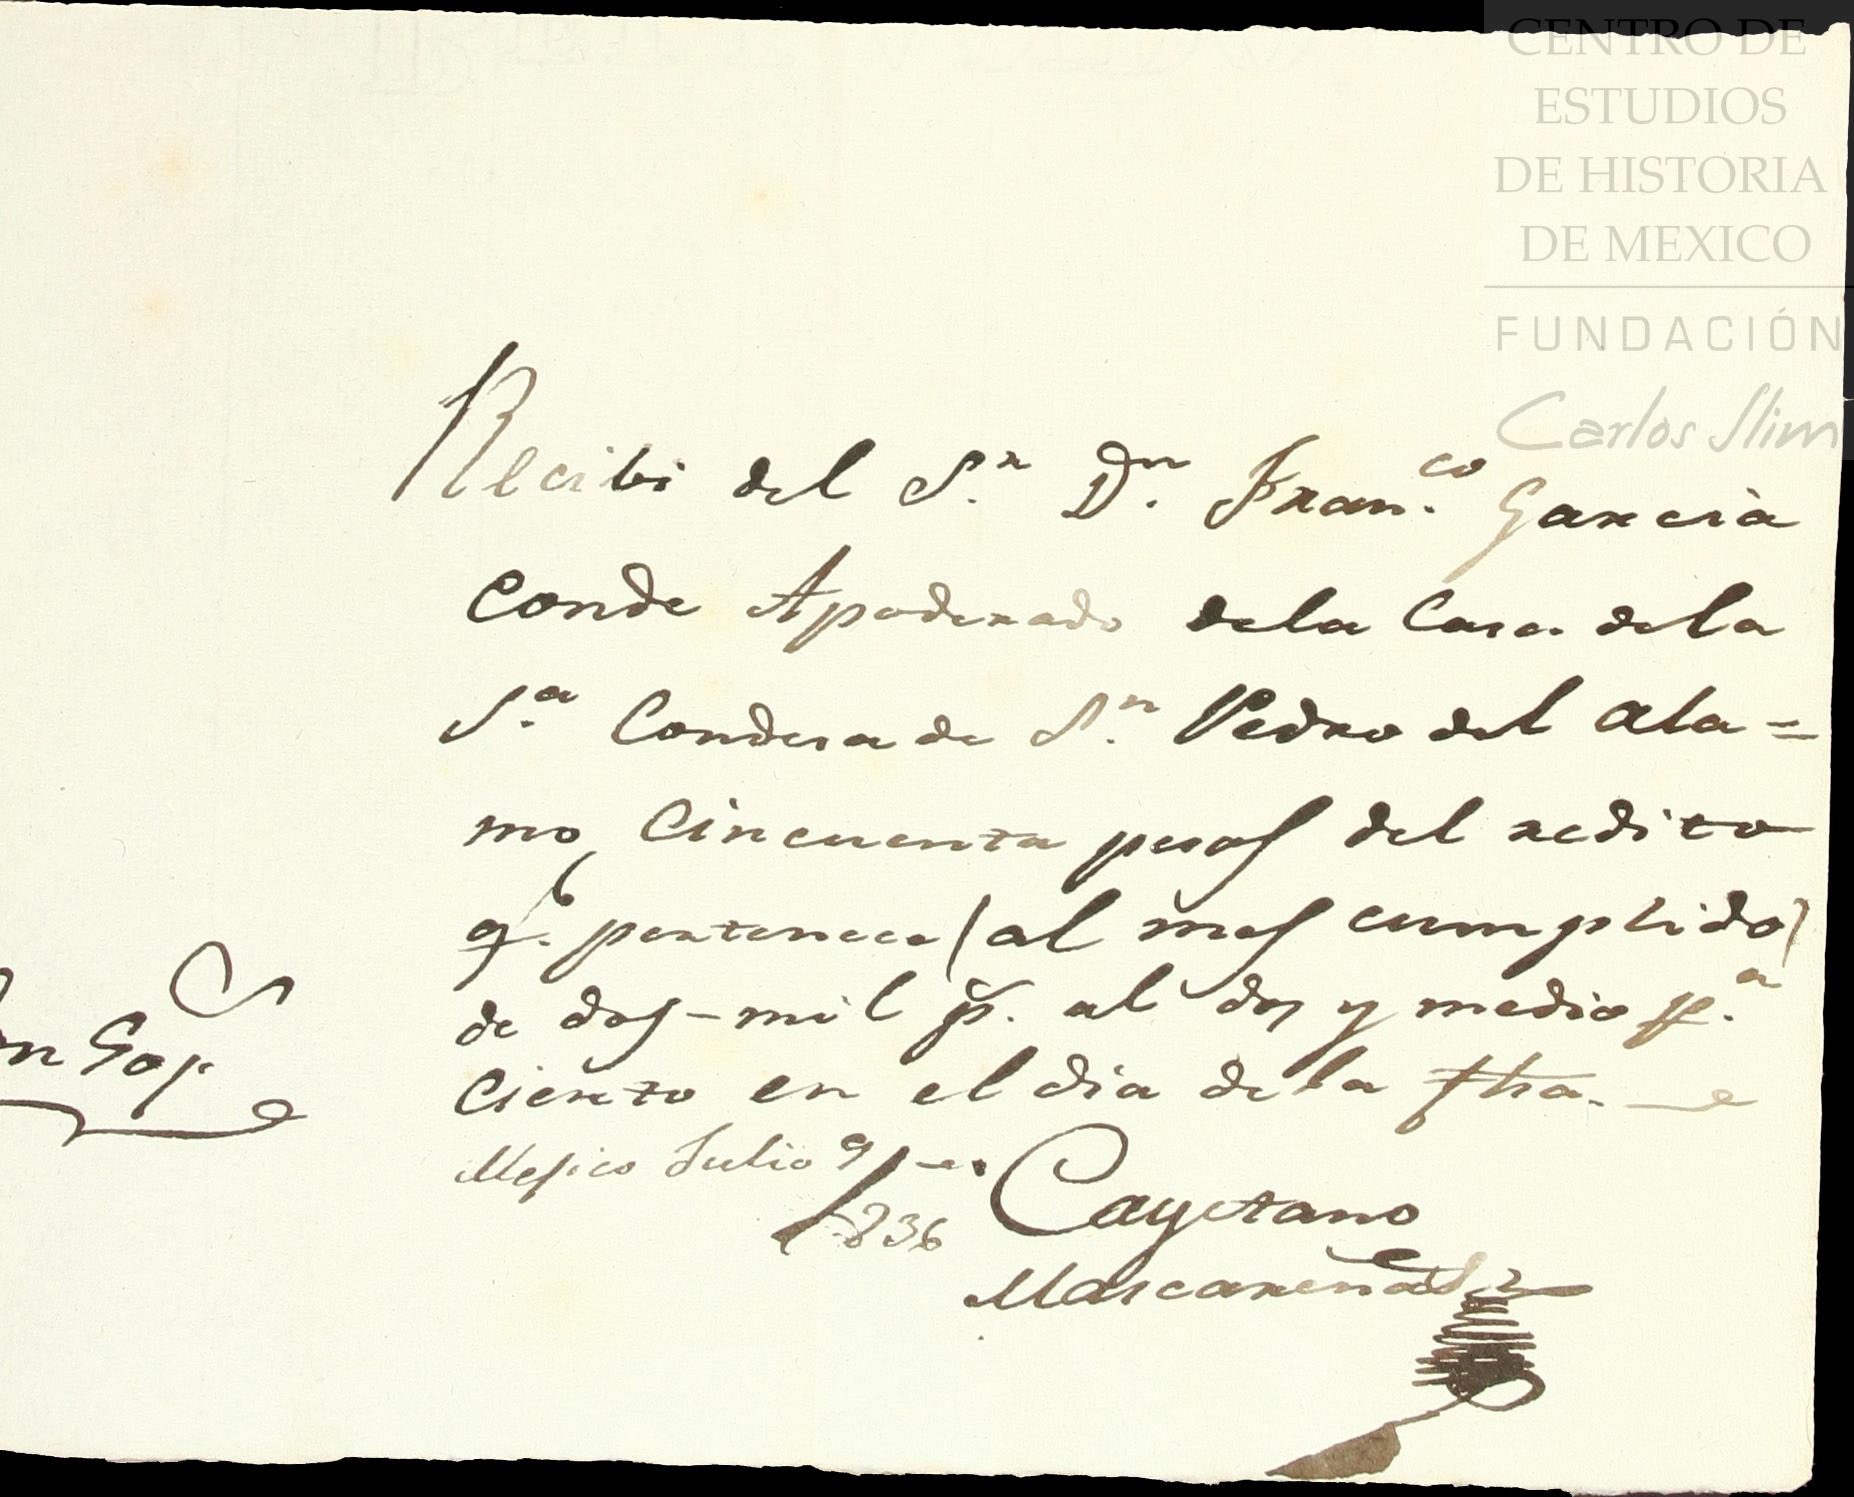 CENTRO DE
ESTUDIOS
DE HISTORIA
DE MEXICO
FUNDACIÓN
Carlos Slim
Recibi del S.r D.n Fran.co Garcia
Conde Apoderado dela Casa dela
S.a Condesa de S.n Pedro del Ala=
mo, Cincuenta pesos del redito
q.e pertenece (al mes cumplido)
de dos-mil p.s al dos y medio p.a
Ciento en el dia de la fha.
Mejico Julio 9 de
1836
Cayetano
Mascareñas